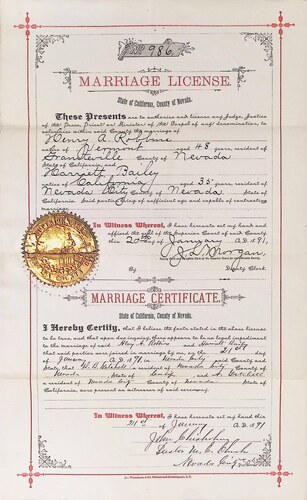 No. 986.
MARRIAGE LICENSE.
State of California, County of Nevada.
These Presents are to authorize and license any Judge, Justice
of the Peace, Priest or Minister of the Gospel of any denomination, to
solemnize within said County the marriage of
Henry A. Robbins
native of Vermont aged 48 years, resident of
Graniteville County of Nevada
State of California, and
Harriett Bailey
native of California aged 35 years, resident of
Nevada City County of Nevada State of
California. Said parties being of sufficient age and capable of contracting
marriage.
In Witness Whereof, I have hereunto set my hand and
affixed the seal of the Superior Court of said County
this 20th day of January A.D. 1891,
J. L. Morgan,
By
Deputy Clerk.
MARRIAGE CERTIFICATE.
State of California, County of Nevada.
I Hereby Certify, that I believe the facts stated in the above license
to be true, and that upon due inquiry there appears to be no legal impediment
to the marriage of said and Harriett Bailey
that said parties were joined in marriage by me, on the 21st
day of January A.D. 1891 in Nevada City said County and
State; that a resident of Nevada City County of
Nevada State of and Getchell
a resident of Nevada City County of Nevada State of
California, were present as witnesses of said ceremony.
In Witness Whereof, I have hereunto set my hand this
21st day of January A.D. 1891
John Chisholm
Pastor M. E. Church
Nevada City